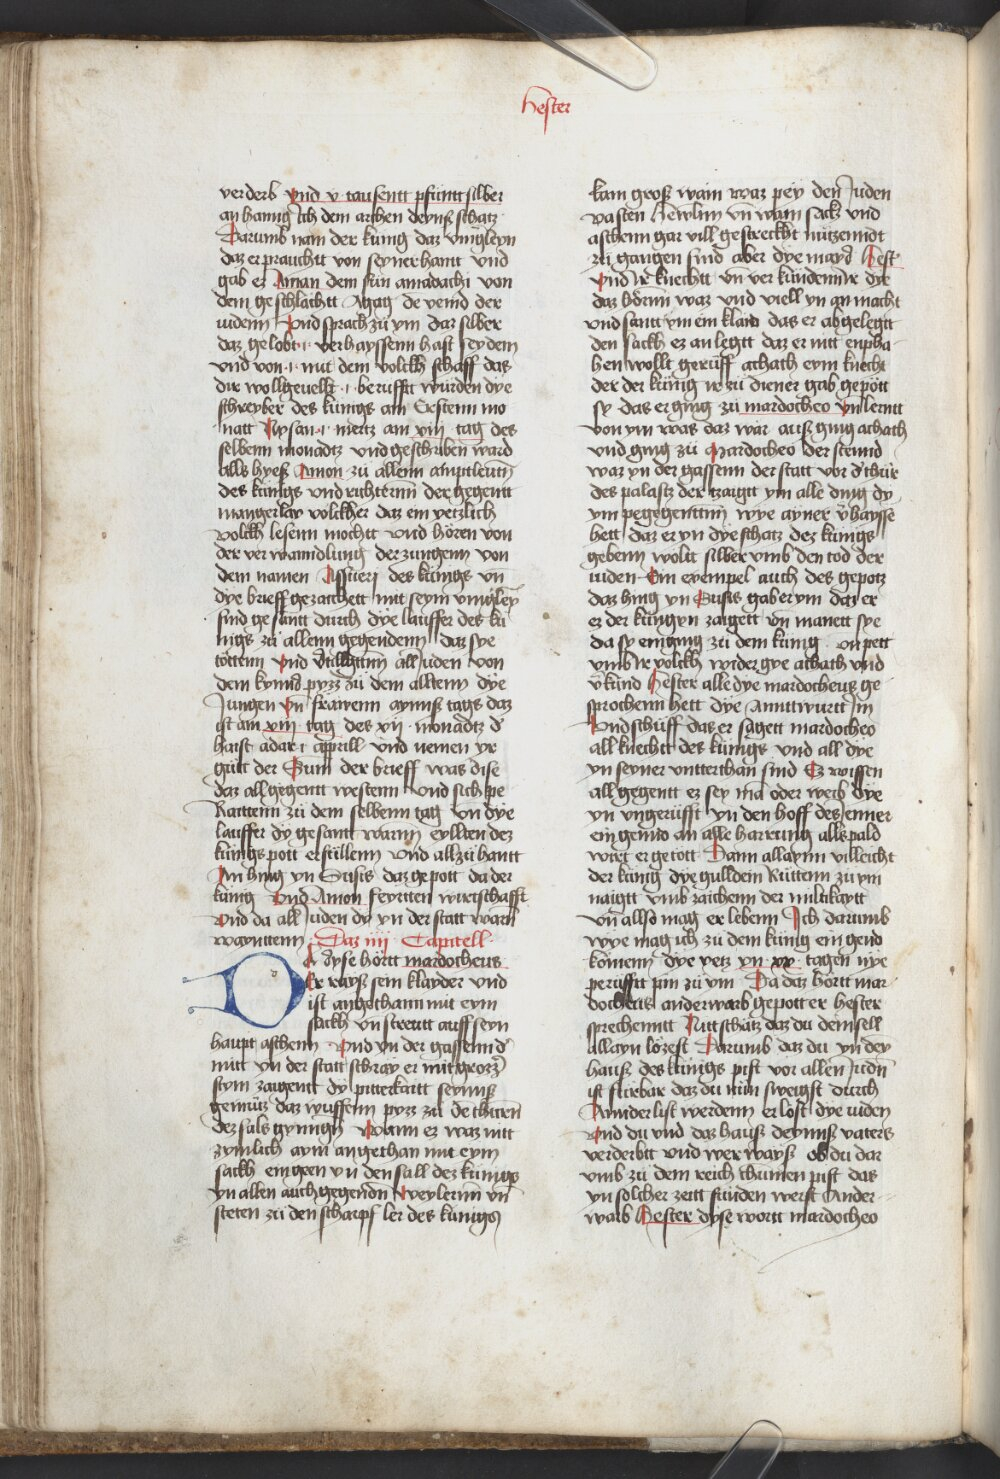 Hester
verderb Vnd v tausentt pfuntt silber
an hanng ich dem archen deynß schatz
Darumb nam der kunig daz vingleyn
daz er prauchtt von seyner hantt vnd
gab ez Aman dem sun amadachi von
dem geschlachtt Agag de veind der
iudenn Vnd sprach zü ym daz silber
daz gelobt .i. verhayssenn hast sey dein
vnd von .i. mit dem volckh schaff das
dir wollgeuelt .i. berufftt wurden dye
schreyber des künigs am Erstenn mo
natt Nysan .i. mertz am xiii tag des
selbenn monadtz vnd geschriben ward
alls hyeß Amon zü allenn amptleutñ
des künigs vnd richterinn der gegentt
mangerlay volckher daz ein yetzlich
volckh lesenn mochtt vnd hören von
der verwanndlung der zungenn von
dem namen Assueri des künigs vn̄
dye brieff gezaichett mit seym vingley
sind gesantt durch dye lauffer des kü
nigs zü allenn gegendenn daz sye
töttenn Vnd vtillgtinn all Juden von
dem kynnd pyzz zü dem alltenn dye
Jungen vn̄ frawenn aynnß tags daz
ist am xiii tag des xii monadtz d'
haist adar .i. appril vnd nemen yr
gütt der Sum der brieff was dise
daz all gegentt westenn vnd sich pe
Raittenn zü dem selbenn tag vn̄ dye
lauffer dy gesantt warnn eyllten dez
künigs pott erfüllenn vnd allzü hantt
An hing yn Susis daz gepott da der
künig Vnd Amon feyrtten wirtschafft
vnd da all Juden dy yn der statt warn̄
waynttenn Daz iiii Capitell
Da dyse hörtt mardocheus
Er rayß sein klayder vnd
ist angethann mit eym
sackh vn̄ streutt auff seyn
haupt aschenn Vnd yn der gassenn d'
mitt yn der statt schray er mit grozz'
stym zaigentt dy pitterkaitt seynnß
gemütz daz wuffenn pyzz zü dē thüren
dez sals gynng Wann ez waz nitt
zymlich aym angethan mit eym
sackh ein geen yn den sall dez künigs
yn allen auch gegendn̄ weylernn vn̄
steten zü den scharpf ler des künigs
kam groß wain waz pey den Juden
vasten hewlnn vn̄ wain sackh vnd
aschenn gar vill gestreckht nützenndt
ein gangen sind aber dye mayd Hest'
Vnd ir knechtt vn̄ verkündenn ir dye
daz hörnn waz vnd viell yn an macht
vnd santt ym ein klaid das er abgelegtt
den sackh ez anlegtt daz er nitt enpha
hen wollt gerüff athath eym knecht
der der künig ir zü diener gab gepött
sy das er ging zü mardocheo Vn̄ lerntt
von ym was daz war auß ging athath
vnd ging zü Mardocheo der steend
waz yn der gassenn der statt vor d' thür
des palastz der zaigtt ym alle ding dy
ym pegegenttnn wye ayner v'haysse
hett daz er yn dye schatz dez künigs
gebenn wollt silber vmb den tod der
iuden Ein exempel auch des gepotz
daz hing yn Susis gab er ym daz er
ez der küngyn zaigett vn̄ manett sye
da sy einging zü dem künig vn̄ pett
vmb ir volckh wider gye athath vnd
v'künd Hester alle dye mardocheus ge
sprochenn hett dye Anntwurtt Im
Vnd schüff das er sagett mardocheo
all knechtt des künigs vnd all dye
yn seyner vntterthan sind Ez wissen
all gegentt ez sey mā oder weib dye
yn vngerüfft yn den hoff des Jenner
ein geend an alle harrung alls pald
wirt er getött Dann allaynn villeicht
der künig dye gulldein Rüttenn zü ym
naigtt vmb zaichenn der miltikaytt
vn̄ allso mag er lebenn Ich darumb
wye mag ich zü dem künig ein gend
kömenn dye yetz yn xx tagen nye
perüfftt pin zü ym Da daz hörtt mar
docheus anderwarb gepott er hester
sprechenntt Nitt schätz daz du dein sell
allayn lözest Darumb daz du yn dey
hauß des künigs pist vor allen Judn̄
ist stirbar daz du nün sweigst durch
Annder list werdenn erlöst dye iuden
Vnd du vnd daz hauß deynnß vaters
verderbtt vnd wer wayß ob du dar
vmb zü dem reich thumen pist das
yn solcher zeitt fünden werst Ander
warb Hester dyse wortt mardocheo